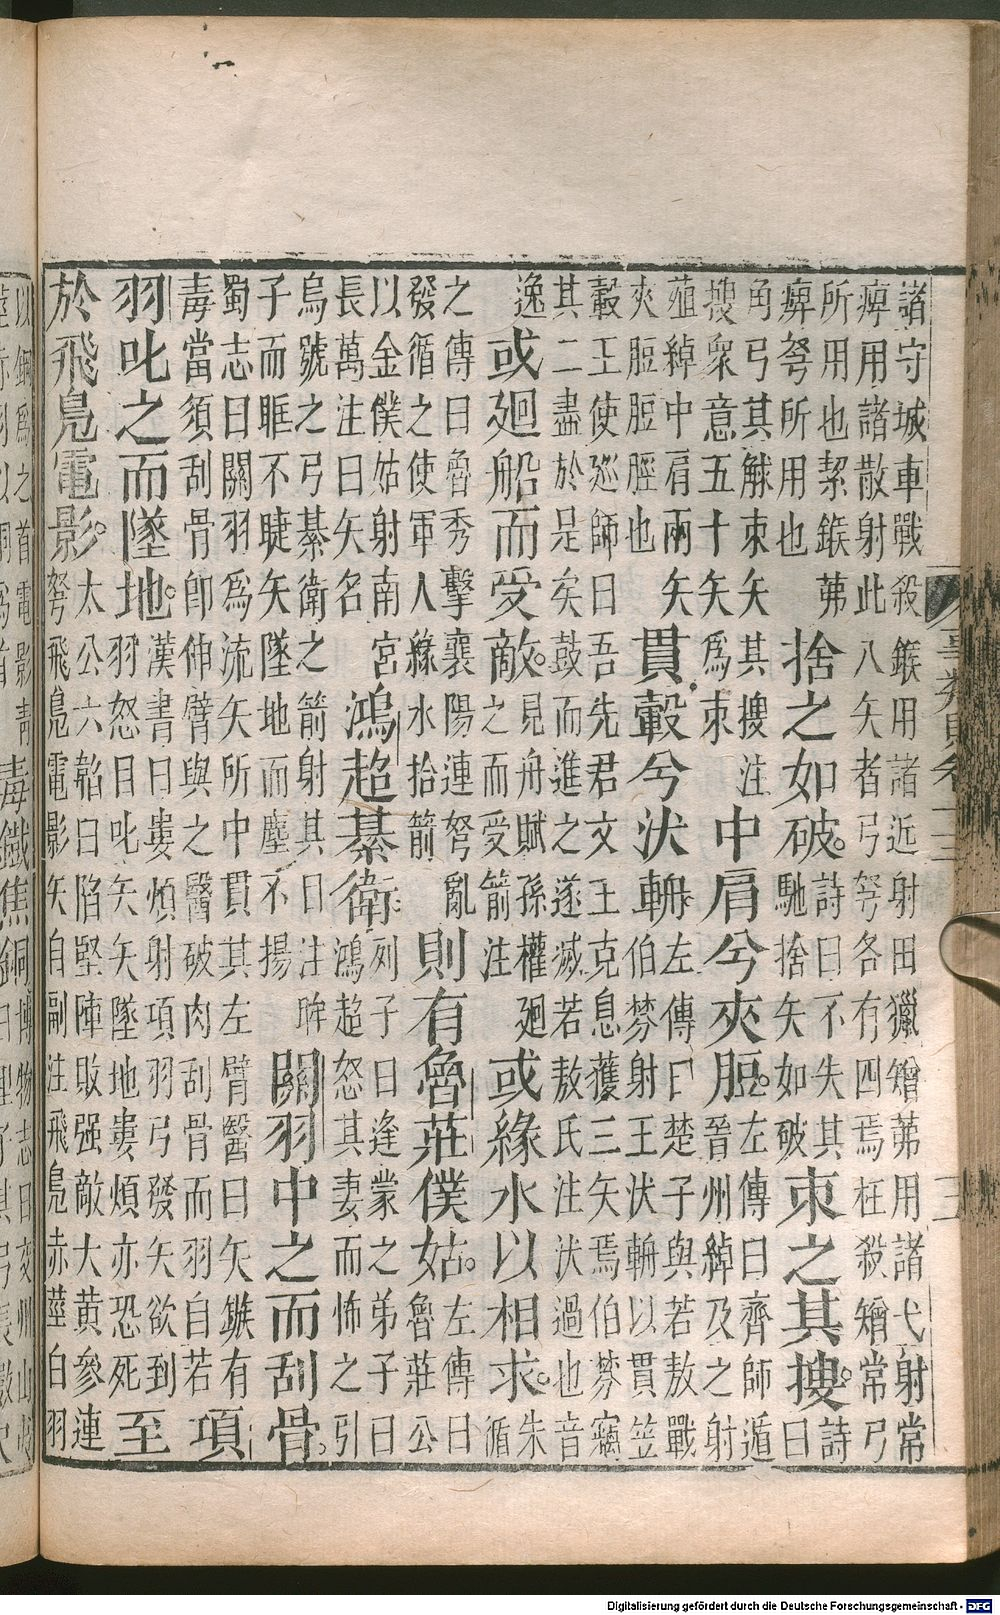 諸守城車戰殺鍭用諸近射田獵矰茀用諸弋射常
痺用諸散射此八矢者弓弩各有四焉枉殺矰常弓
所用也絜鍭茀
痺弩所用也
捨之如破。
詩曰不失其
馳捨矢如破
束之其搜。
詩
曰
角弓其觩束矢其搜注
搜衆意五十矢爲束
中肩兮夾脰。
左傳曰齊師遁
晉州綽及之射
殖綽中肩兩矢
夾脰脰脛也
貫轂兮汏輈。
左傳曰楚子與若敖戰
伯棼射王汏輈以貫笠
轂王使巡師曰吾先君文王克息獲三矢焉伯棼竊
其二盡於是矣鼓而進之遂滅若敖氏注汏過也音
逸
或廻船而受敵。
見舟賦孫權廻
之而受箭注
或緣水以相求。
朱
循
之傳曰魯秀擊襄陽連弩亂
發循之使軍人緣水拾箭
則有魯莊僕姑。
左傳曰
魯莊公
以金僕姑射南宮
長萬注曰矢名
鴻超綦衛。
列子曰逢蒙之弟子曰
鴻超怒其妻而怖之引
烏號之弓綦衛之箭射其目注眸
子而眶不睫矢墜地而塵不揚
關羽中之而刮骨。
蜀志曰關羽爲流矢所中貫其左臂醫曰矢鏃有
毒當須刮骨卽伸臂與之醫破肉刮骨而羽自若
項
羽叱之而墜地。
漢書曰婁煩射項羽弓發矢欲到
羽怒目叱矢矢墜地婁煩亦恐死
至
於飛鳧電影。
太公六韜曰陷堅陣敗强敵大黃參連
弩飛鳧電影矢自副注飛鳧赤莖白羽
以銅爲之首電影青
毒鐵焦銅
博物志曰交州山
Digitalisierung gefördert durch die Deutsche Forschungsgemeinschaft - DFG